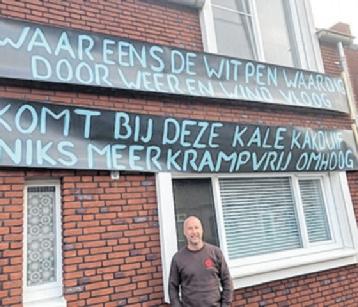 WAAR EENS DE WITPEN WAARDIG
DOOR WEER EN WIND VLOOG
KOMT BIJ DEZE KALE KAKDUIF
NIKS MEER KRAMPVRIJ OMHOOG